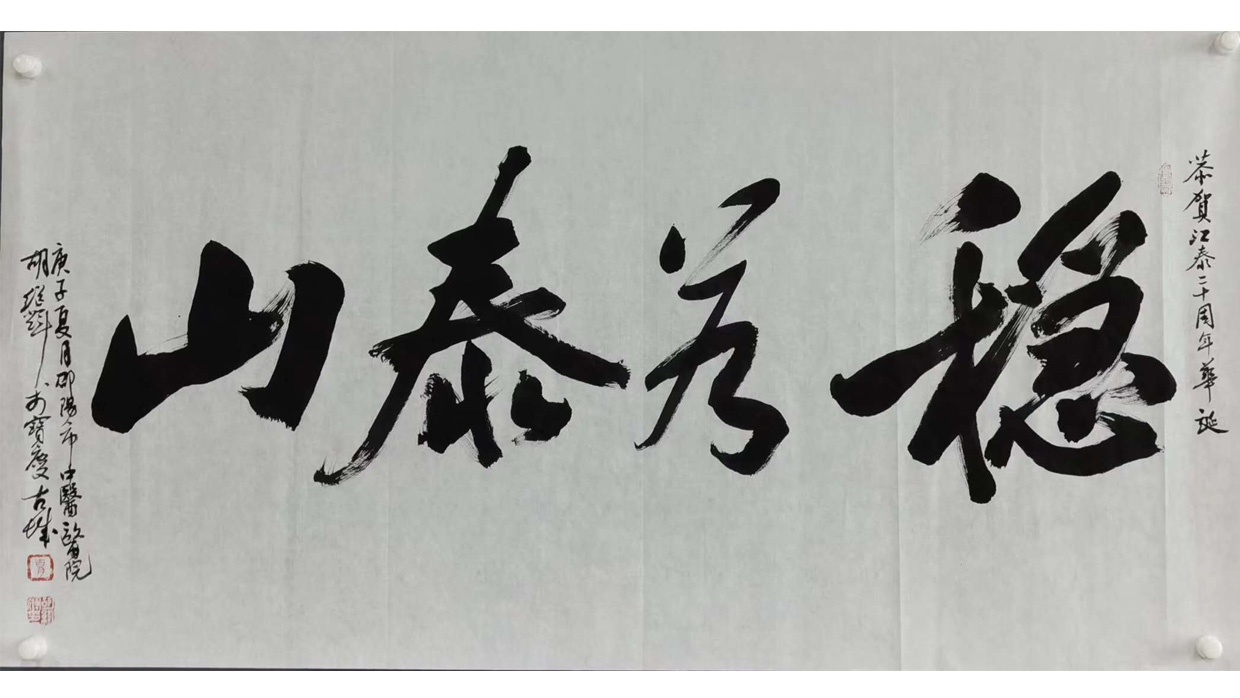 恭賀江泰二十周年華誕
穩若泰山
庚子夏月邵陽市中醫醫院
胡 於寶慶古城